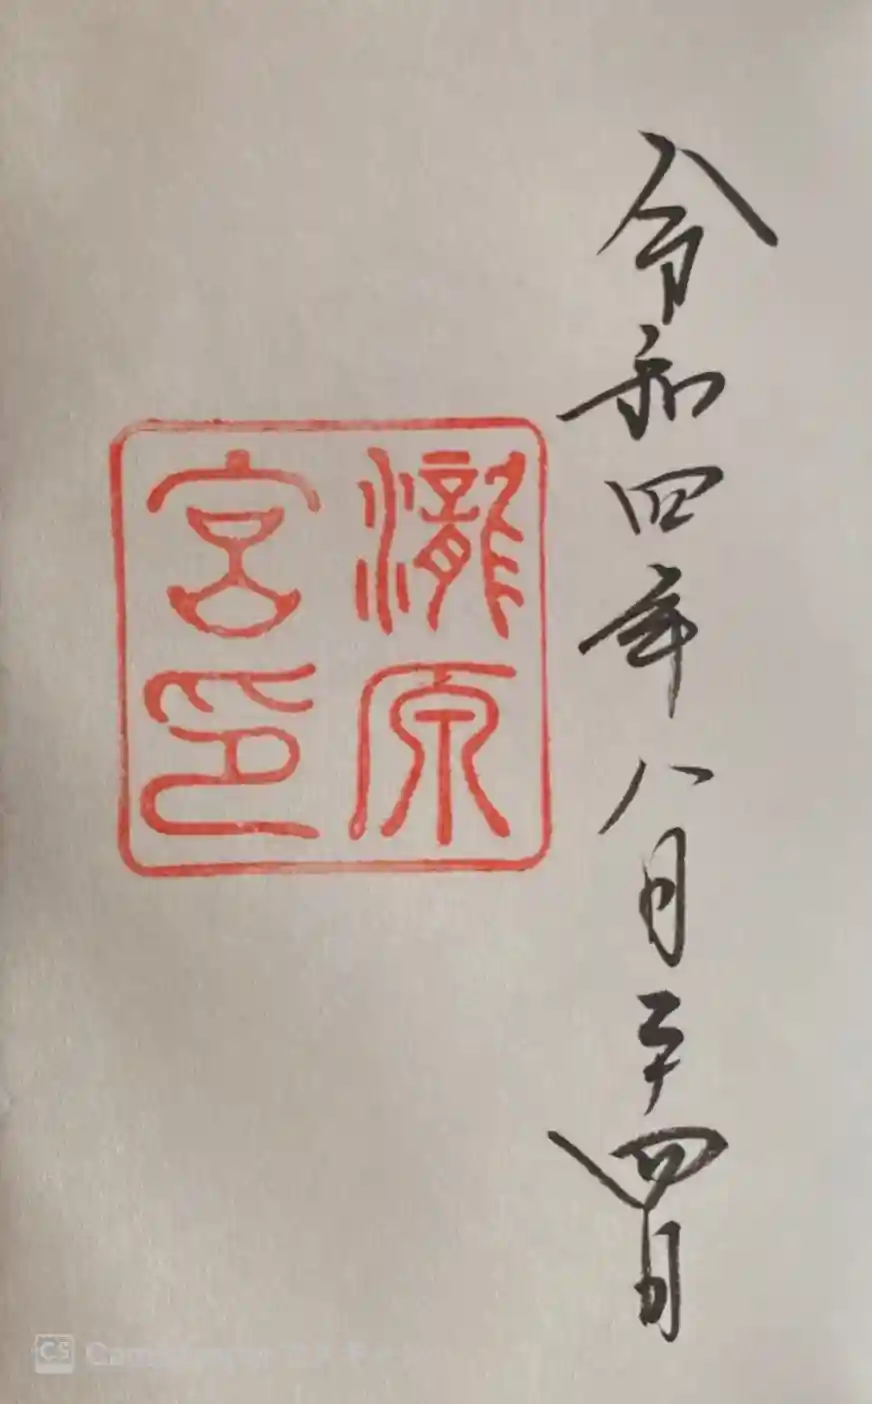 令和四年八月二十四日
瀧原
宮印
CS CamScanner